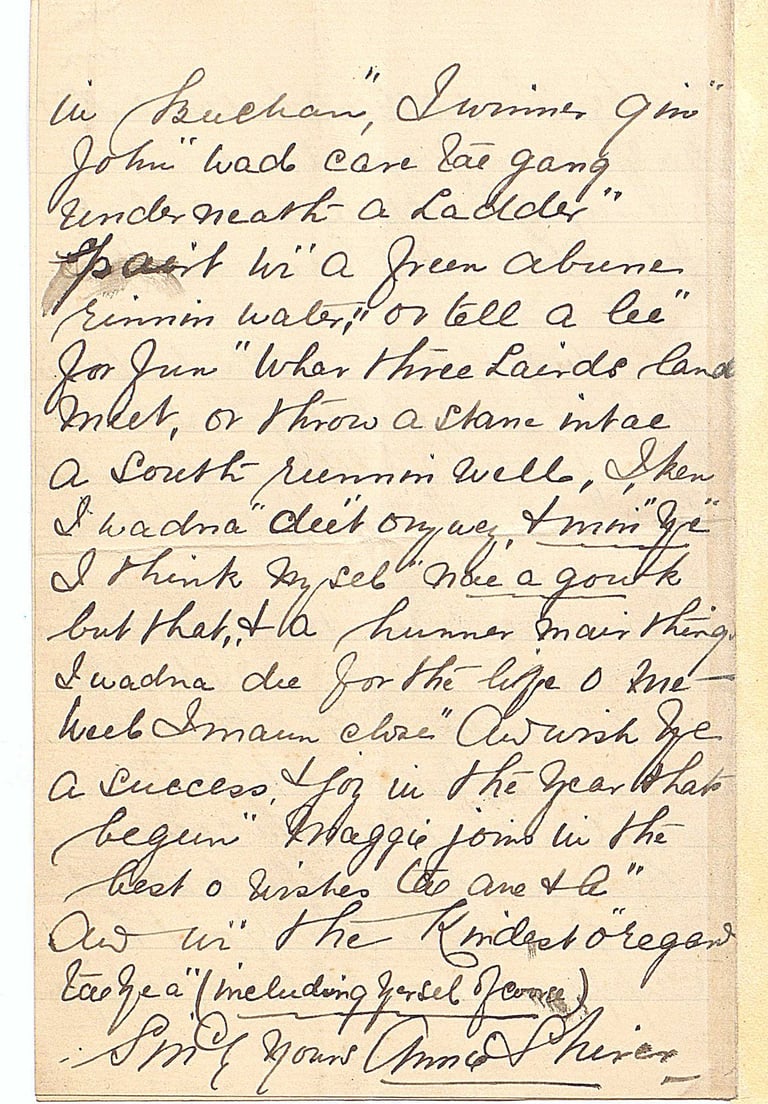 in Buchan", I winner gin"
John" wad care tae gang
underneath a Ladder"
pairt wi" a freen abune
rinnin water," or tell a lee"
for fun "Whar three Lairds land
meet, or throw a stane intae
a south runnin well, I ken
I wadna "dee't onywey, & min" "ye"
I think mysel "nae a gowk
but that, & a hunner mair thing
I wadna dee for the life o me—
Weel I maun close" Aw wish ye
a success, & joy in the year thats
begun" Maggie joins in the
best o wishes tae ane & a"
Aw wi" the Kindest o" regard
tae ye a" (including yersel of course)
Yours Annie Shirer